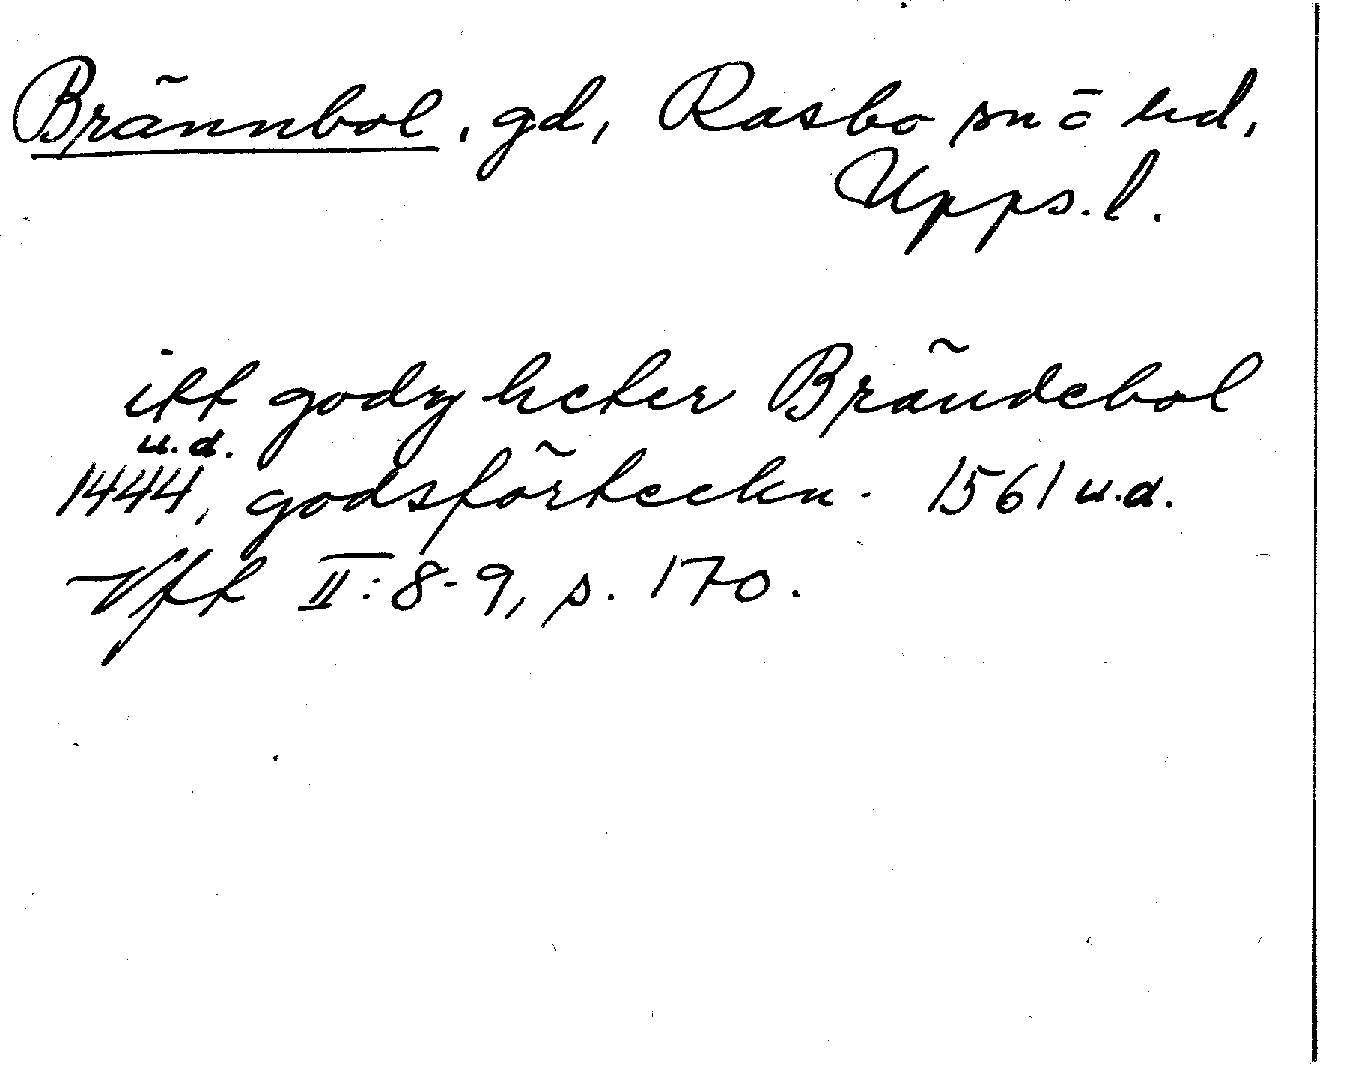 Brännbol, gd, Rasbo sn o hd,
Upps.l.
itt godz heter Brändebol
u.d.
1444, godsförteckn. 1561 u.d.
Vft II:8-9, s. 170.